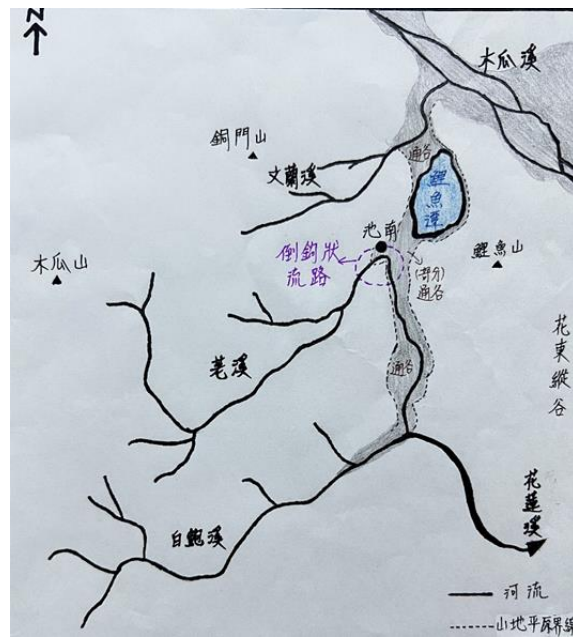 N
木瓜溪
銅門山
文蘭溪
通谷
鯉魚潭
池南
倒鈎狀
流路
(部分)
通谷
鯉魚山
木瓜山
花東縱谷
荖溪
通谷
花蓮溪
白鮑溪
河流
山地平原界線